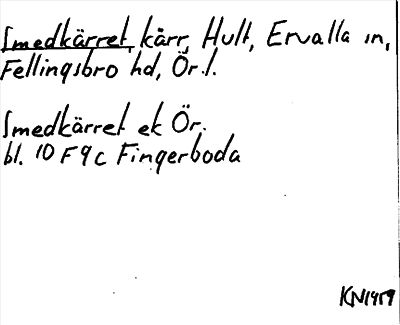 Smedkärret, kärr, Hult, Ervalla sn,
Fellingsbro hd, Ör.l.
Smedkärret ek Ör.
bl. 10 F 9 c Fingerboda
KN1959